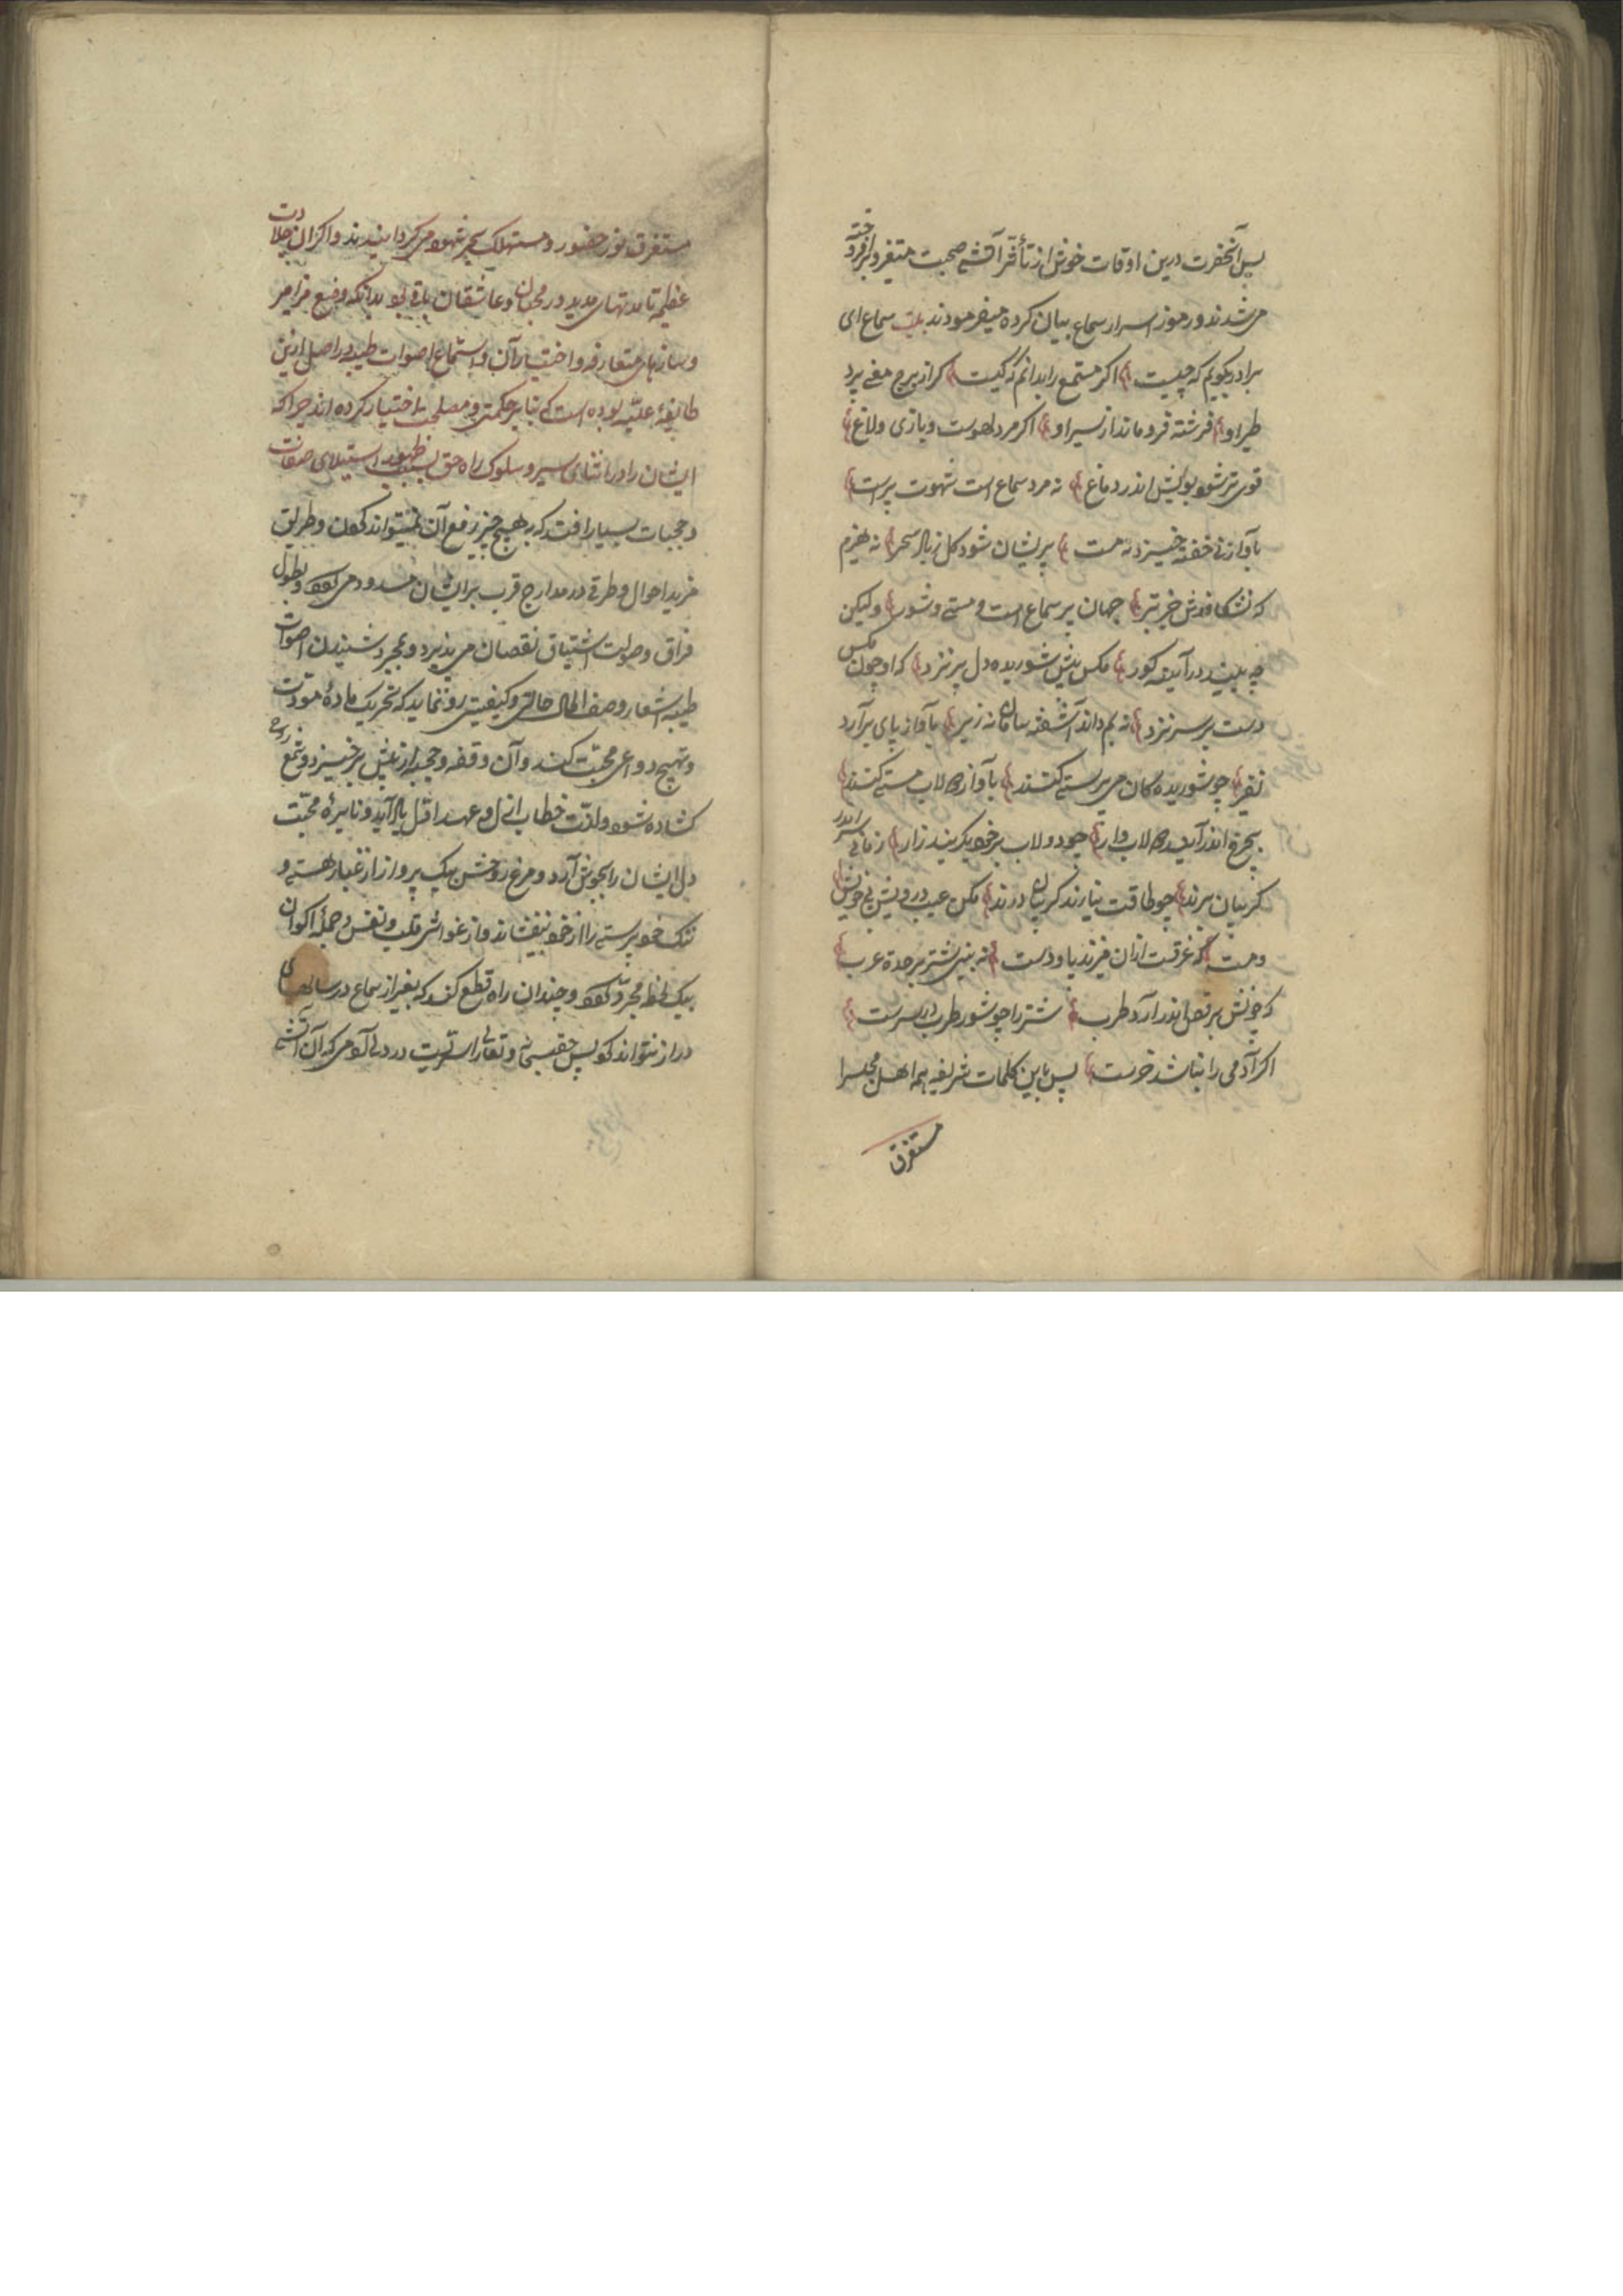 پس آنحضرت درین اوقات خوش از تأثر آتش صحبت متغیر و برافروخته
می شدند و رموز اسرار سماع بیان کرده میفرمودند بیت سماع ای
برادر بگویم که چیست اگر مستمع را بدانم که کیست گر از برج معنی پرد
طیر او فرشته فرو ماند از سیر او اگر مرد لهوست و بازی و لاغ
قوی تر شود دیوش اندر دماغ نه مرد سماع است شهوت پرست
بآواز خفته خیزد نه مست پریشان شود گل بباد سحر نه هیزم
که نشکافدش جز تبر جهان پر سماع است و مستی و شور ولیکن
چه بیند در آینه کور مگس پیش شوریده دل پر نزد که او چون مگس
دست بر سر نزد نه بم داند آشفته سامان نه زیر بآواز پای برآرد
نفیر چو شوریدگان می پرستی کنند بآواز دولاب مستی کنند
بچرخ اندر آیند دولاب وار چو دولاب بر خود بگریند زار زمانی سر اندر
گریبان برند چو طاقت نیارند گریبان درند مکن عیب درویش بیخویش
و مست که غرقست ازان میزند پا و دست نه بینی شتر بر حدة عرب
که چونش برقص اندر آرد طرب شتر را چو شور طرب در سرست
اگر آدمی را نباشد خرست پس باین کلمات شریفه همه اهل مجلس را
مستغرق
مستغرق نور حضور و مستهلک بحر شهود می گردانیدند و اگر آن جلادت
عظیم تا مدتهای مدید در محبان و عاشقان باقی بود بدانکه وضع مزامیر
و سازهای متعارفه و اختیار آن و استماع اصوات طیبه در اصل ازین
طایفهٔ علیّه بوده است که بنا بر حکمت و مصلحت اختیار کرده اند چرا که
ایشان را در اثنای سیر و سلوک راه حق بسبب ظهور استیلای صفات
و حجبات بسیار افتد که بهیچ چیز رفع آن نمیتواند کردن و طریق
مزید احوال و طرق در مدارج قرب بر ایشان مسدود می گردد و بطول
فراق و صولت اشتیاق نقصان می پذیرد و بمجرد شنیدن اصوات
طیبه اشعار وصف الحال حالتی و کیفیتی رو نماید که تحریک مادهٔ مودّت
و تهییج دواعی محبت کند و آن وقفه و حجبه از پیش برخیزد و شمع روح
گشاده شود و لذت خطاب ازل و عهد اوّل یاد آید و نایرهٔ محبّت
دل ایشان را بجوش آرد و مرغ روحش بیک پرواز از غبار هستی و
ننگ خودپرستی را از خود بیفشاند و از غواشی قلب و نفس و جمله اکوان
بیک لحظه مجرّد گردد و چندان راه قطع کند که بغیر از سماع در سالهای
دراز نتواند کرد پس حق سبحانه و تعالی را سرّیست در دل آدمی که آن آتشی